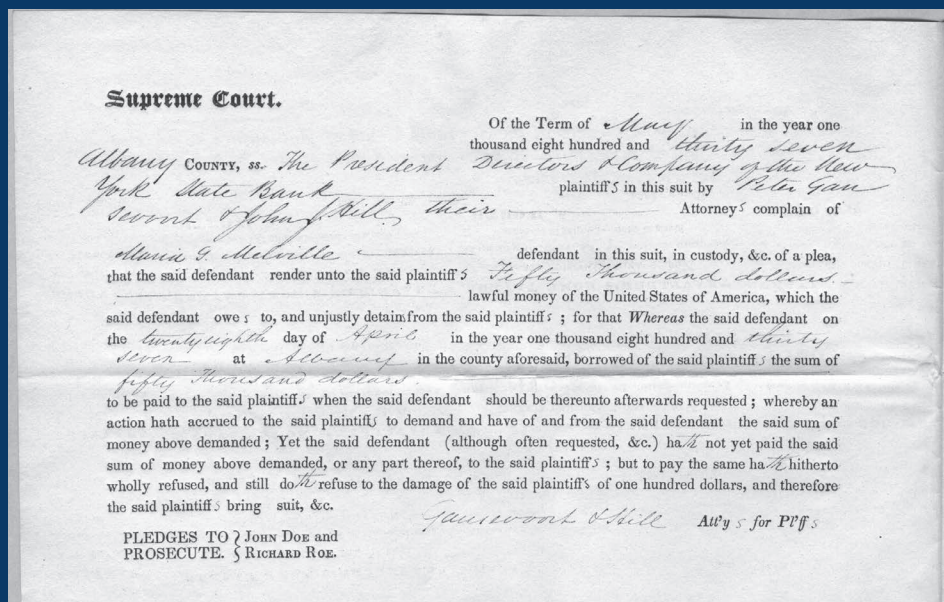 Supreme Court.
Of the Term of May in the year one
thousand eight hundred and thirty seven
Albany COUNTY, ss. The President Directors & Company of the New
York State Bank plaintiffs in this suit by Peter Gan
sevoort & John J Hill, their Attorneys complain of
Maria G. Melville defendant in this suit, in custody, &c. of a plea,
that the said defendant render unto the said plaintiffs Fifty Thousand dollars.
lawful money of the United States of America, which the
said defendant owes to, and unjustly detains from the said plaintiffs ; for that Whereas the said defendant on
the twenty eighth day of April in the year one thousand eight hundred and thirty
seven at Albany in the county aforesaid, borrowed of the said plaintiffs the sum of
fifty Thousand dollars.
to be paid to the said plaintiffs when the said defendant should be thereunto afterwards requested ; whereby an
action hath accrued to the said plaintiffs to demand and have of and from the said defendant the said sum of
money above demanded ; Yet the said defendant (although often requested, &c.) hath not yet paid the said
sum of money above demanded, or any part thereof, to the said plaintiffs ; but to pay the same hath hitherto
wholly refused, and still doth refuse to the damage of the said plaintiffs of one hundred dollars, and therefore
the said plaintiffs bring suit, &c.
Gansevoort & Hill Att'ys for Pl'ffs
PLEDGES TO } JOHN DOE and
PROSECUTE. } RICHARD ROE.